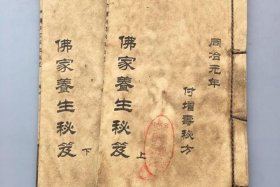 同治元年
付增壽秘方
佛家養生秘笈 上
佛家養生秘笈 下